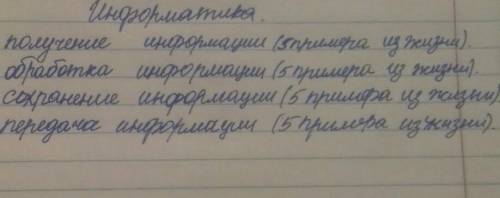 Информатика.
получение информации (5 примера из жизни).
обработка информации (5 примера из жизни).
сохранение информации (5 примера из жизни)
передача информации (5 примера из жизни).